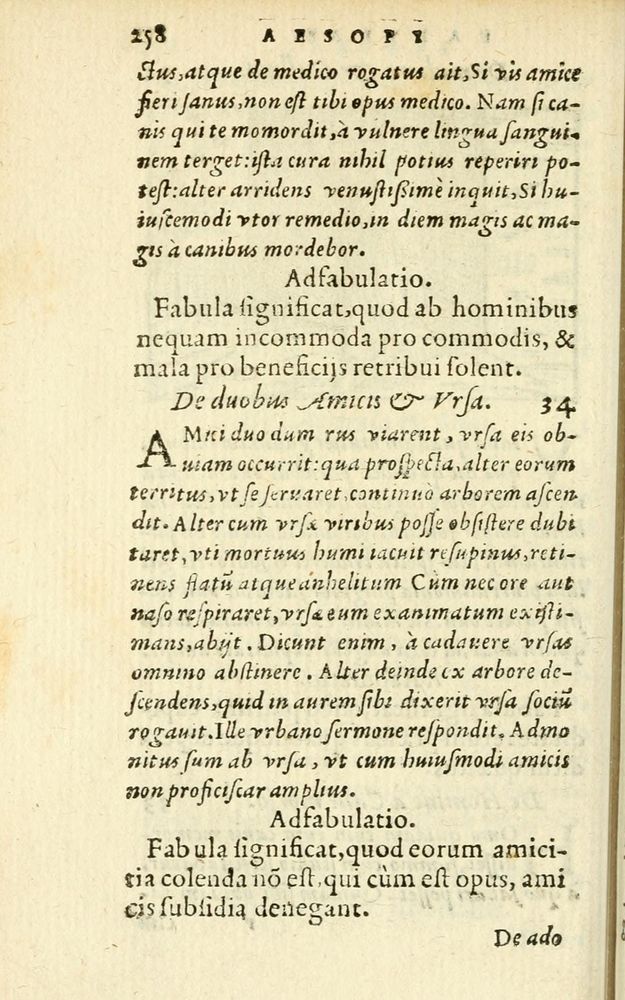 258 AESOPI
ctus, atque de medico rogatus ait, Si vis amice
fieri ſanus, non eſt tibi opus medico. Nam ſi ca-
nis qui te momordit, à vulnere lingua ſangui-
nem terget: iſta cura nihil potius reperiri po-
teſt: alter arridens venuſtiſſimè inquit, Si hu-
iuſcemodi vtor remedio, in diem magis ac ma-
gis à canibus mordebor.
Adfabulatio.
Fabula ſignificat, quod ab hominibus
nequam incommoda pro commodis, &
mala pro beneficijs retribui ſolent.
De duobus Amicis & Vrſa. 34
AMici duo dum rus viarent, vrſa eis ob-
uiam occurrit: qua proſpecta, alter eorum
territus, vt ſe ſeruaret, continuò arborem aſcen
dit. Alter cum vrſæ viribus poſſe obſiſtere dubi
taret, vti mortuus humi iacuit reſupinus, reti-
nens flatū atque anhelitum Cùm nec ore aut
naſo reſpiraret, vrſa eum exanimatum exiſti-
mans, abijt. Dicunt enim, à cadauere vrſas
omnino abſtinere. Alter deinde ex arbore de-
ſcendens, quid in aurem ſibi dixerit vrſa ſociū
rogauit. Ille vrbano ſermone reſpondit, Admo
nitus ſum ab vrſa, vt cum huiuſmodi amicis
non proficiſcar amplius.
Adfabulatio.
Fabula ſignificat, quod eorum amici-
tia colenda nō eſt, qui cùm eſt opus, ami
cis ſubſidia denegant.
De ado